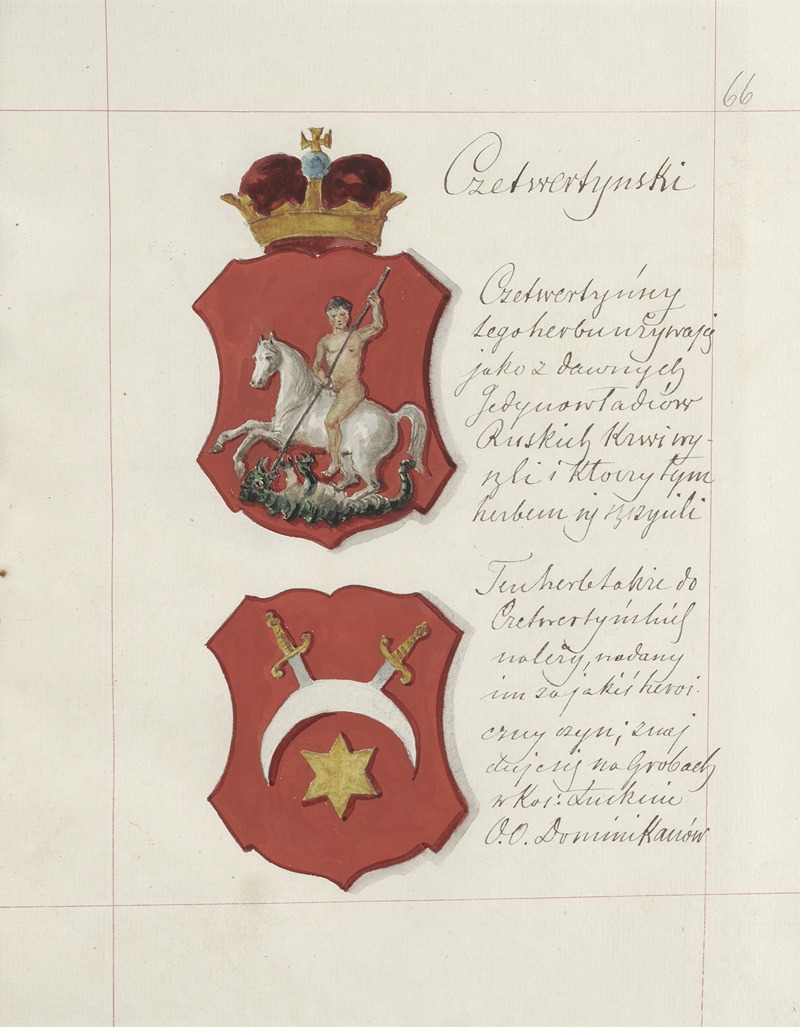 66
Czetwertynski
Czetwertyńscy
tego herbu używają
jako z dawnych
Jedynowładców
Ruskich Krwi wy-
szli i którzy tym
herbem się
Ten herb także do
Czetwertyńskich
należy, nadany
im za jakiś heroi-
czny czyn; znaj
duje się na Grobach
w Koś: Łuckim
O.O. Dominikanów